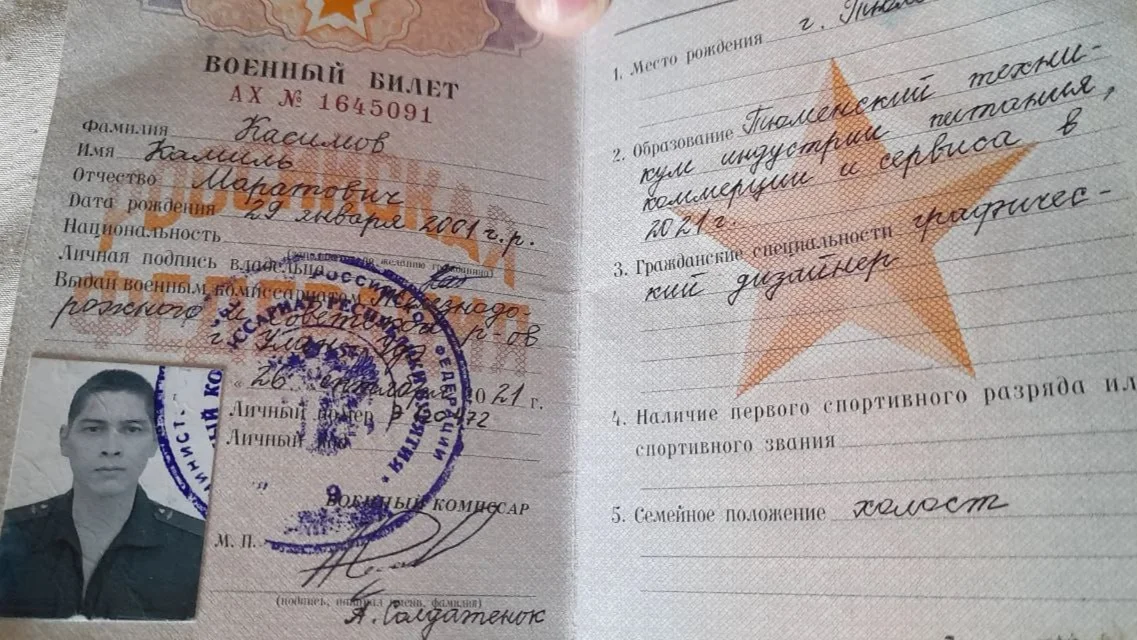 ВОЕННЫЙ БИЛЕТ
АХ № 1645091
Фамилия Касимов
Имя Камиль
Отчество Маратович
Дата рождения 29 января 2001 г.р.
Национальность
Личная подпись владельца
Выдан военным комиссариатом Железнодо-
рожного и Советского р-ов
г. Улан-Удэ
"26 2021 г.
Личный номер
Личный
ВОЕННЫЙ КОМИССАР
М. П.
(подпись, фамилия)
А. Солдатенок
РОССИЙСКАЯ
РОССИЙСКОЙ ФЕДЕРАЦИИ
1. Место рождения г. Тюме
2. Образование Тюменский техни-
кум индустрии питания,
коммерции и сервиса в
2021 г.
3. Гражданские специальности графичес-
кий дизайнер
4. Наличие первого спортивного разряда ил
спортивного звания
5. Семейное положение холост